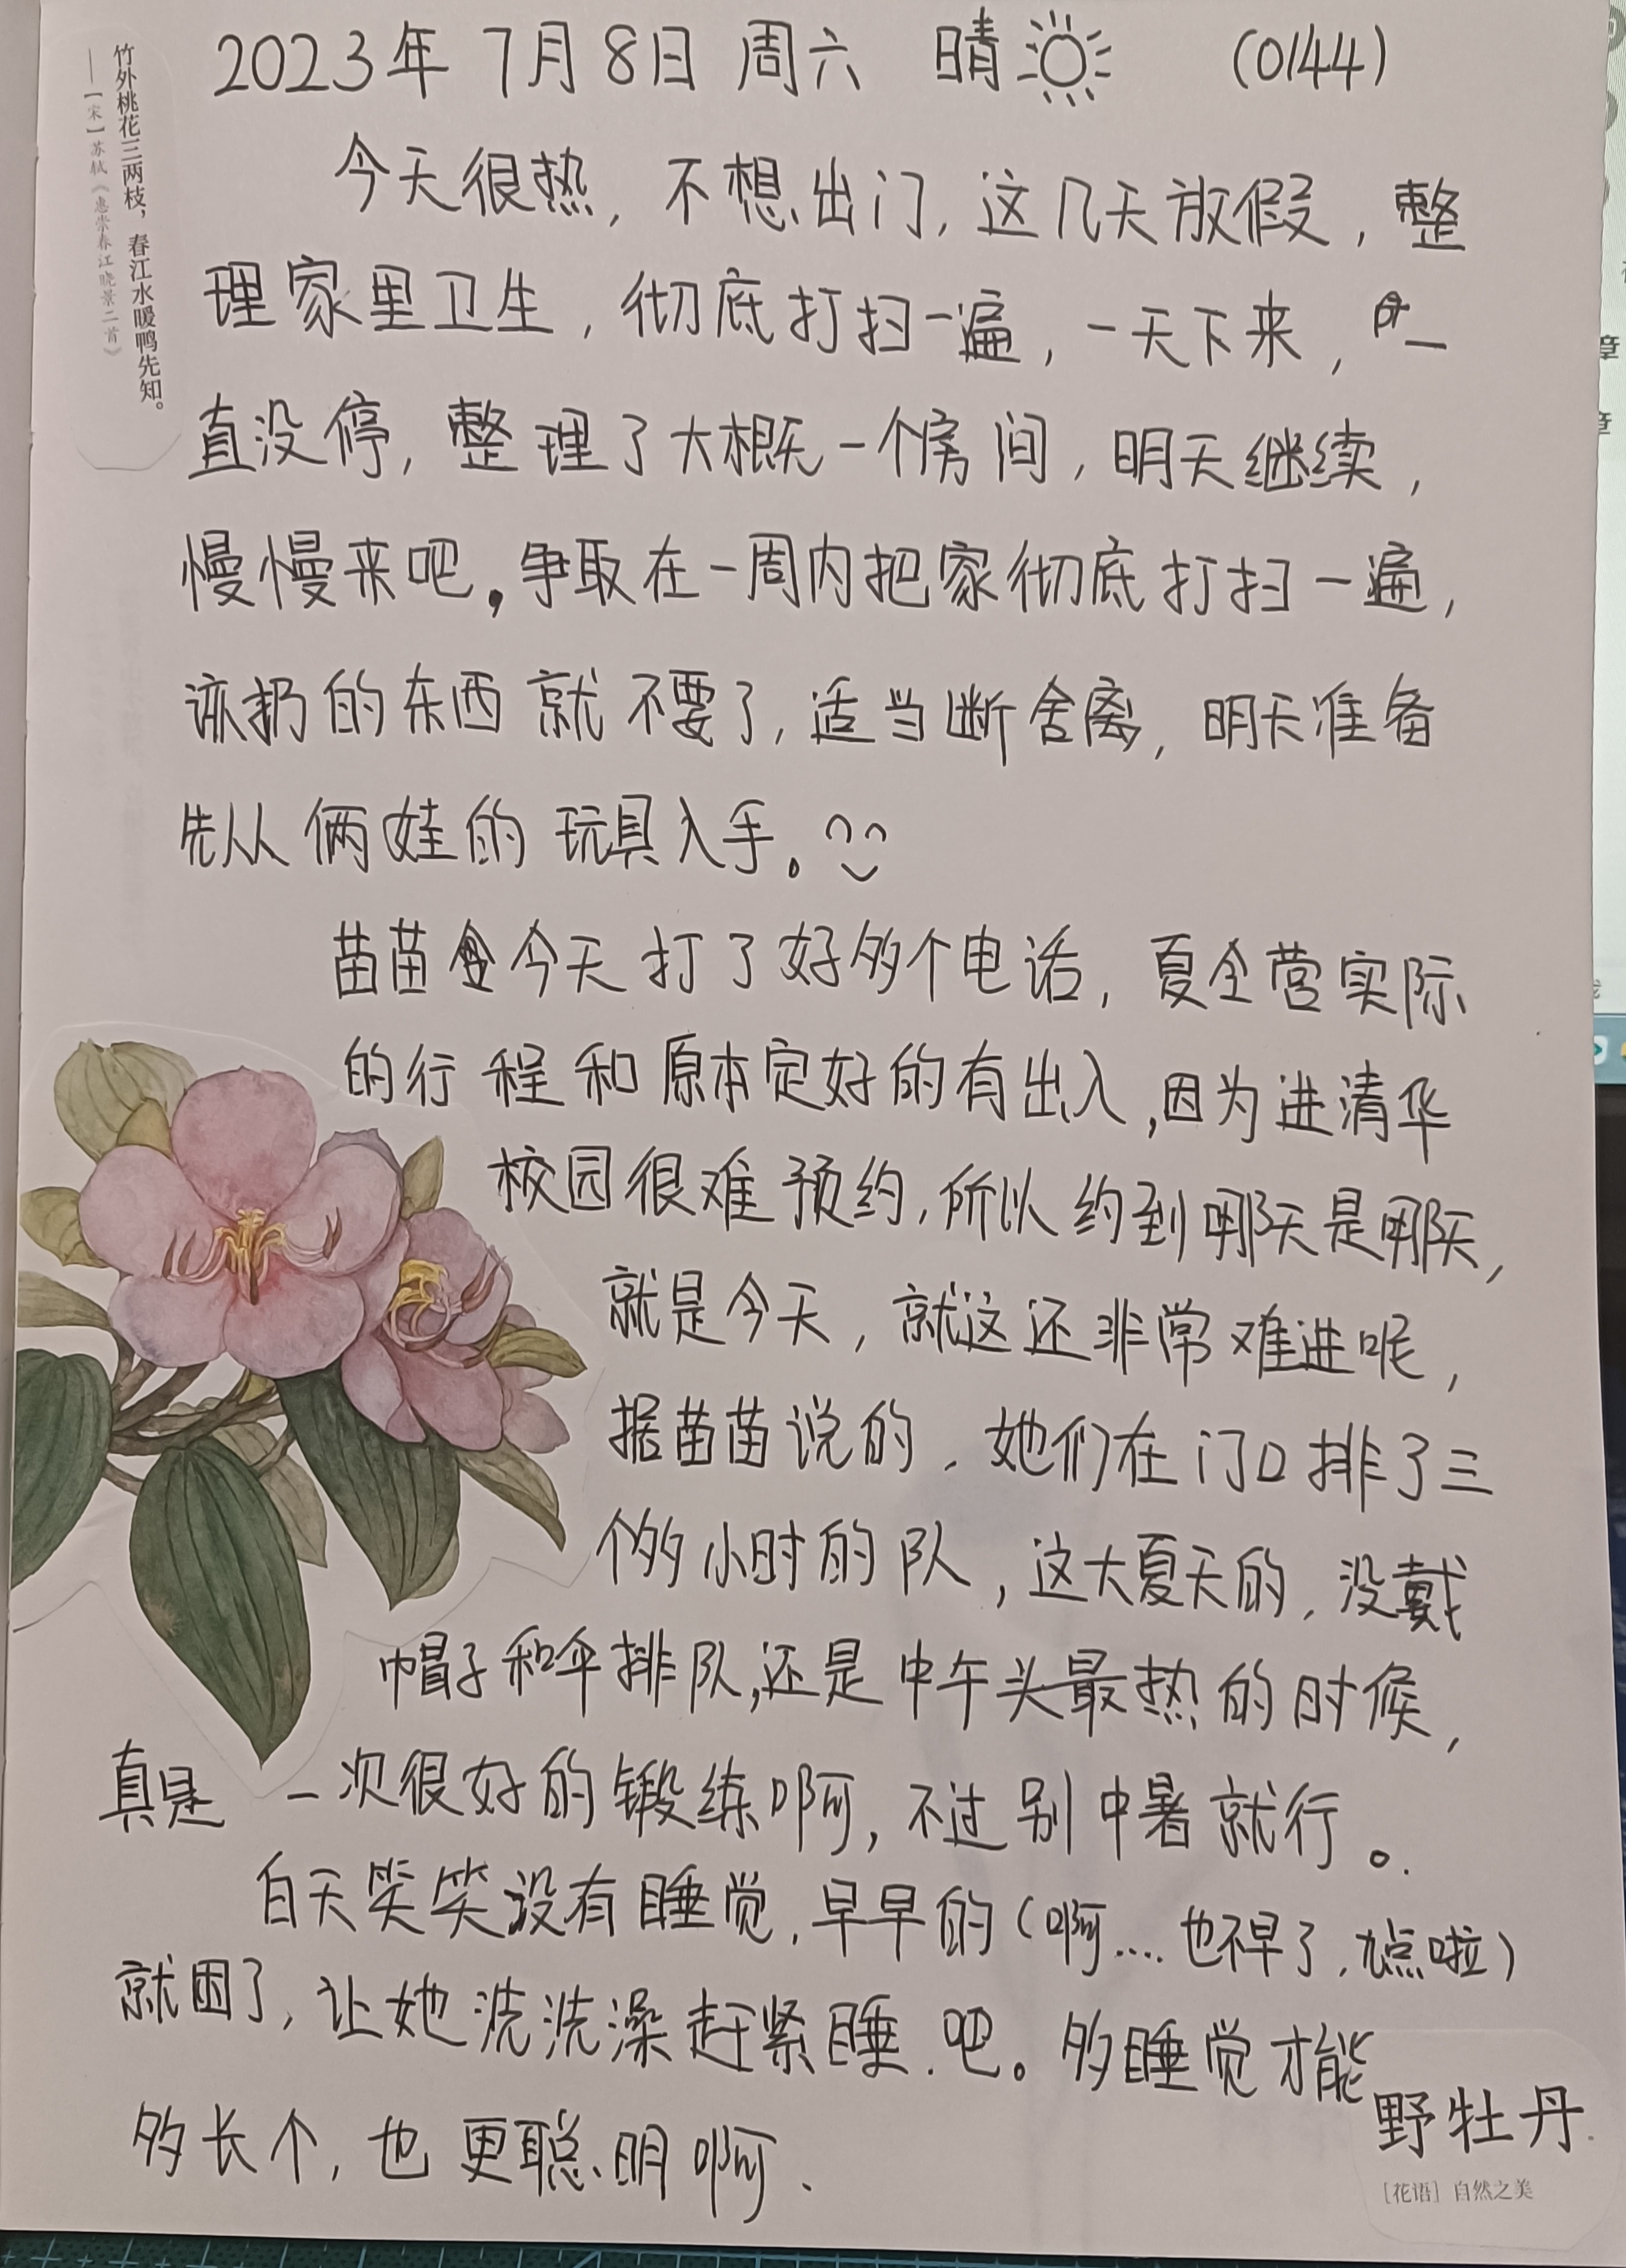 2023年7月8日 周六 晴 (0144)
竹外桃花三两枝，春江水暖鸭先知。
——［宋］苏轼《惠崇春江晓景二首》
今天很热，不想出门，这几天放假，整
理家里卫生，彻底打扫一遍，一天下来，一
直没停，整理了大概一个房间，明天继续，
慢慢来吧，争取在一周内把家彻底打扫一遍，
该扔的东西就不要了，适当断舍离，明天准备
先从俩娃的玩具入手。
苗苗今天打了好多个电话，夏令营实际
的行程和原本定好的有出入，因为进清华
校园很难预约，所以约到哪天是哪天，
就是今天，就这还非常难进呢，
据苗苗说的，她们在门口排了三
个多小时的队，这大夏天的，没戴
帽子和伞排队，还是中午头最热的时候，
真是一次很好的锻练啊，不过别中暑就行。
白天笑笑没有睡觉，早早的（啊....也不早了，九点啦）
就困了，让她洗洗澡赶紧睡吧。多睡觉才能
多长个，也更聪明啊.
野牡丹
［花语］自然之美